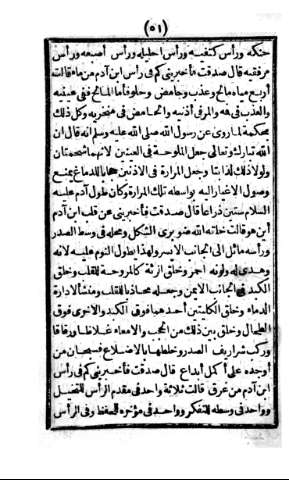 (٥١)
حنكه ورأس كتفيه ورأس احليله ورأس أصبعه ورأس
مرفقيه قال صدقت فأخبريني كم في رأس ابن آدم من ماء قالت
أربع مياه مالح وعذب وحامض وحلو فأما المالح ففي عينيه
والعذب في فمه والمر في أذنيه والحامض في منخريه وكل ذلك
محكمة لما روى عن رسول الله صلى الله عليه وسلم انه قال ان
الله تبارك وتعالى جعل الملوحة في العينين لانهما شحمتان
ولولا ذلك لذابتا وجعل المرارة في الاذنين حجابا للدماغ يمنع
وصول الاغيار اليه بواسطة تلك المرارة وكان طول آدم عليه
السلام ستين ذراعا قال صدقت فأخبريني عن قلب ابن آدم
أين هو قالت خلقه الله صنوبري الشكل ومحله في وسط الصدر
ورأسه مائل الى الجانب الايسر ولهذا بطول النوم عليه لانه
ولونه احمر وخلق الرئة كالمروحة للقلب وخلق
الكبد في الجانب الايمن وجعله محاذيا للقلب ومنشأ لادارة
الدماء وخلق الكليتين أحدهما فوق الكبد والاخرى فوق
الطحال وخلق بين ذلك من الحجب والامعاء غلاظا ورقاقا
وركب شراريف الصدر وخلطها بالاضلاع فسبحان من
أوجده على أكمل ابداع قال صدقت فأخبريني كم في رأس
ابن آدم من عرق قالت ثلاثة واحد في مقدم الرأس للتفضل
وواحد في وسطه للتفكر وواحد في مؤخره للحفظ وفي الرأس